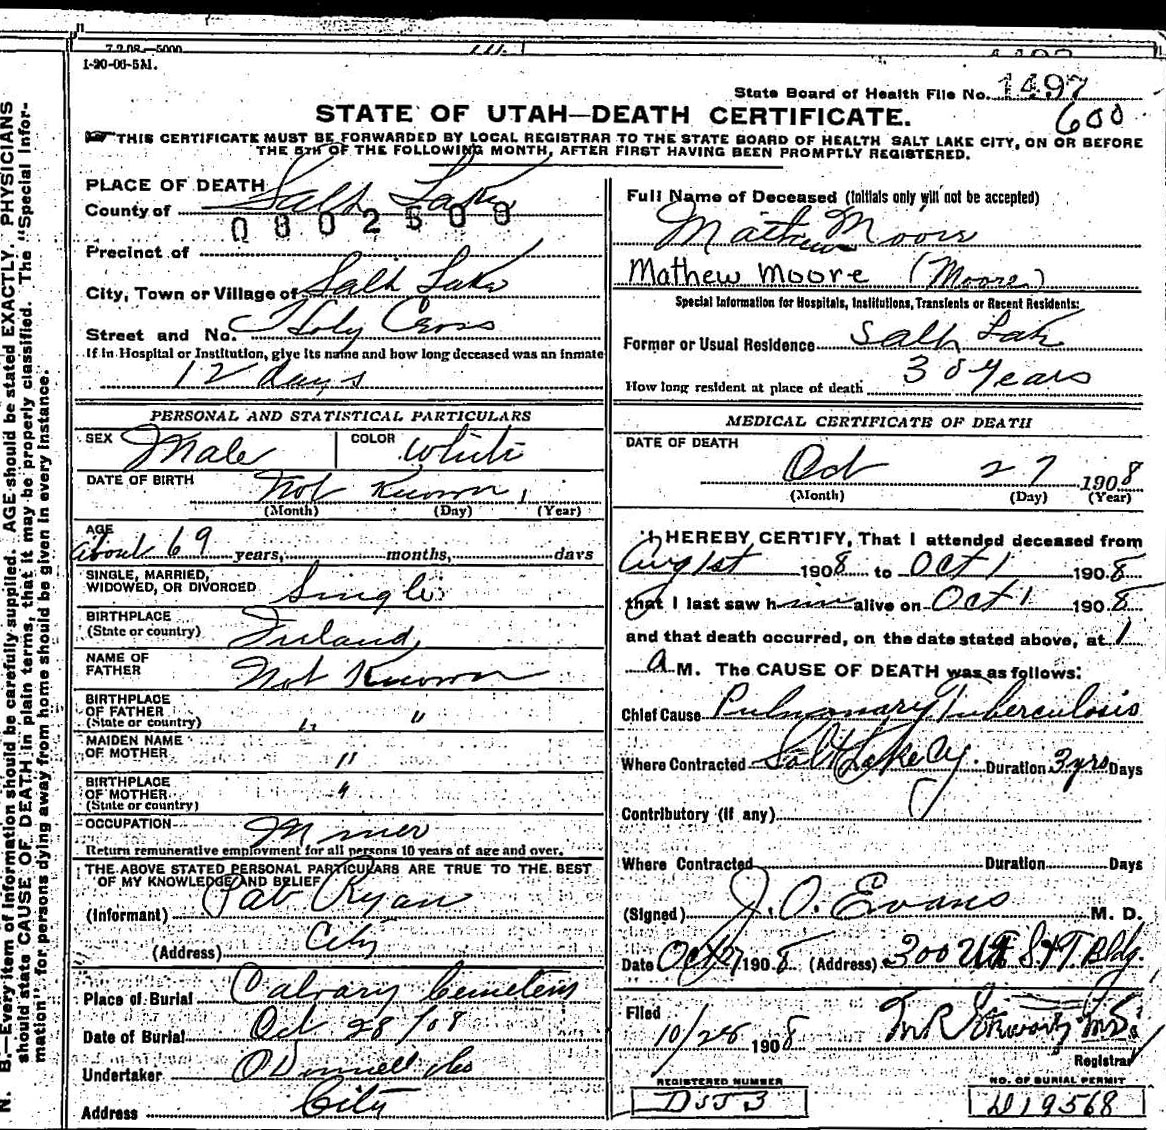 7.2.08.—5000
1-20-06-5M.
State Board of Health File No. 1497
600
STATE OF UTAH—DEATH CERTIFICATE.
THIS CERTIFICATE MUST BE FORWARDED BY LOCAL REGISTRAR TO THE STATE BOARD OF HEALTH SALT LAKE CITY, ON OR BEFORE
THE 5TH OF THE FOLLOWING MONTH, AFTER FIRST HAVING BEEN PROMPTLY REGISTERED.
N. B.—Every item of information should be carefully supplied. AGE should be stated EXACTLY. PHYSICIANS
should state CAUSE OF DEATH in plain terms, that it may be properly classified. The "Special Infor-
mation" for persons dying away from home should be given in every instance.
PLACE OF DEATH
County of Salt Lake
0802508
Precinct of
City, Town or Village of Salt Lake
Street and No. Holy Cross
If in Hospital or Institution, give its name and how long deceased was an inmate
12 days
PERSONAL AND STATISTICAL PARTICULARS
SEX Male COLOR White
DATE OF BIRTH Not Known
(Month) (Day) (Year)
AGE
about 69 years, months, days
SINGLE, MARRIED,
WIDOWED, OR DIVORCED Single
BIRTHPLACE
(State or country) Ireland
NAME OF
FATHER Not Known
BIRTHPLACE
OF FATHER
(State or country) " "
MAIDEN NAME
OF MOTHER "
BIRTHPLACE
OF MOTHER "
(State or country)
OCCUPATION Miner
Return remunerative employment for all persons 10 years of age and over.
THE ABOVE STATED PERSONAL PARTICULARS ARE TRUE TO THE BEST
OF MY KNOWLEDGE AND BELIEF
(Informant) Pat Ryan
(Address) City
Place of Burial Calvary Cemetery
Date of Burial Oct 28/08
Undertaker O'Donnell & Co
Address City
Full Name of Deceased (Initials only will not be accepted)
Mathew Moore
Mathew Moore (Moore)
Special Information for Hospitals, Institutions, Transients or Recent Residents:
Former or Usual Residence Salt Lake
How long resident at place of death 30 years
MEDICAL CERTIFICATE OF DEATH
DATE OF DEATH
Oct 27 1908
(Month) (Day) (Year)
I HEREBY CERTIFY, That I attended deceased from
Aug 1st 1908 to Oct 1 1908
that I last saw him alive on Oct 1 1908
and that death occurred, on the date stated above, at 1
a M. The CAUSE OF DEATH was as follows:
Chief Cause Pulmonary Tuberculosis
Where Contracted Salt Lake Cy. Duration 3 yrs Days
Contributory (if any)
Where Contracted Duration Days
(Signed) J. O. Evans M. D.
Date Oct 27 1908 (Address) 300 Utah S&T. Bldg.
Filed
10/28 1908
Registrar
REGISTERED NUMBER
D553
NO. OF BURIAL PERMIT
D19568